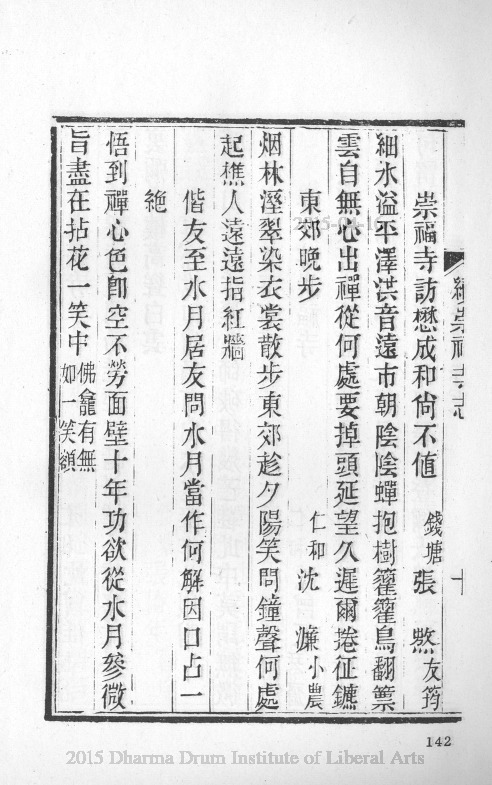 續崇福寺志
十
崇福寺訪懋成和尙不值 錢塘張 憗友筠
細水溢平澤洪音遠市朝陰陰蟬抱樹籊籊鳥翻篻
雲自無心出禪從何處要掉頭延望久遲爾捲征鑣
東郊晚步 仁和沈 濂小農
烟林溼翠染衣裳散步東郊趁夕陽笑問鐘聲何處
起樵人遠遠指紅牆
偕友至水月居友問水月當作何解因口占一
絶
悟到禪心色卽空不勞面壁十年功欲從水月參微
旨盡在拈花一笑中佛龕有無
如一笑額
142
2015 Dharma Drum Institute of Liberal Arts